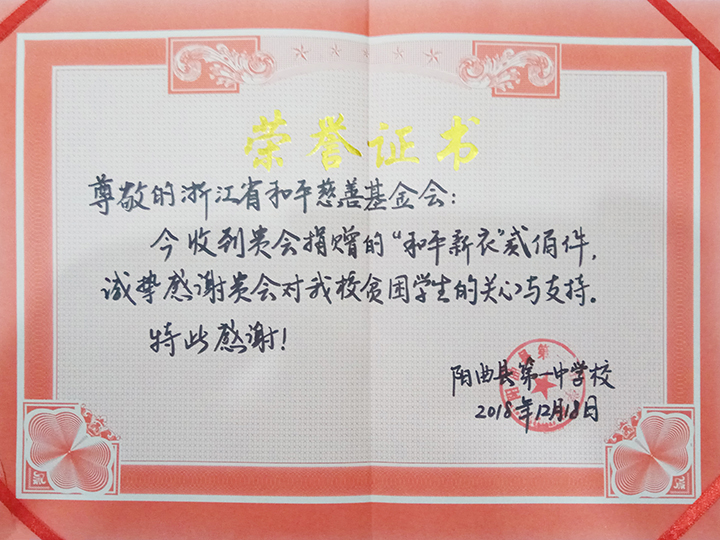 荣誉证书
尊敬的浙江省和平慈善基金会：
今收到贵会捐赠的“和平新衣”贰佰件，
诚挚感谢贵会对我校贫困学生的关心与支持。
特此感谢！
阳曲县第一中学校
2018年12月18日